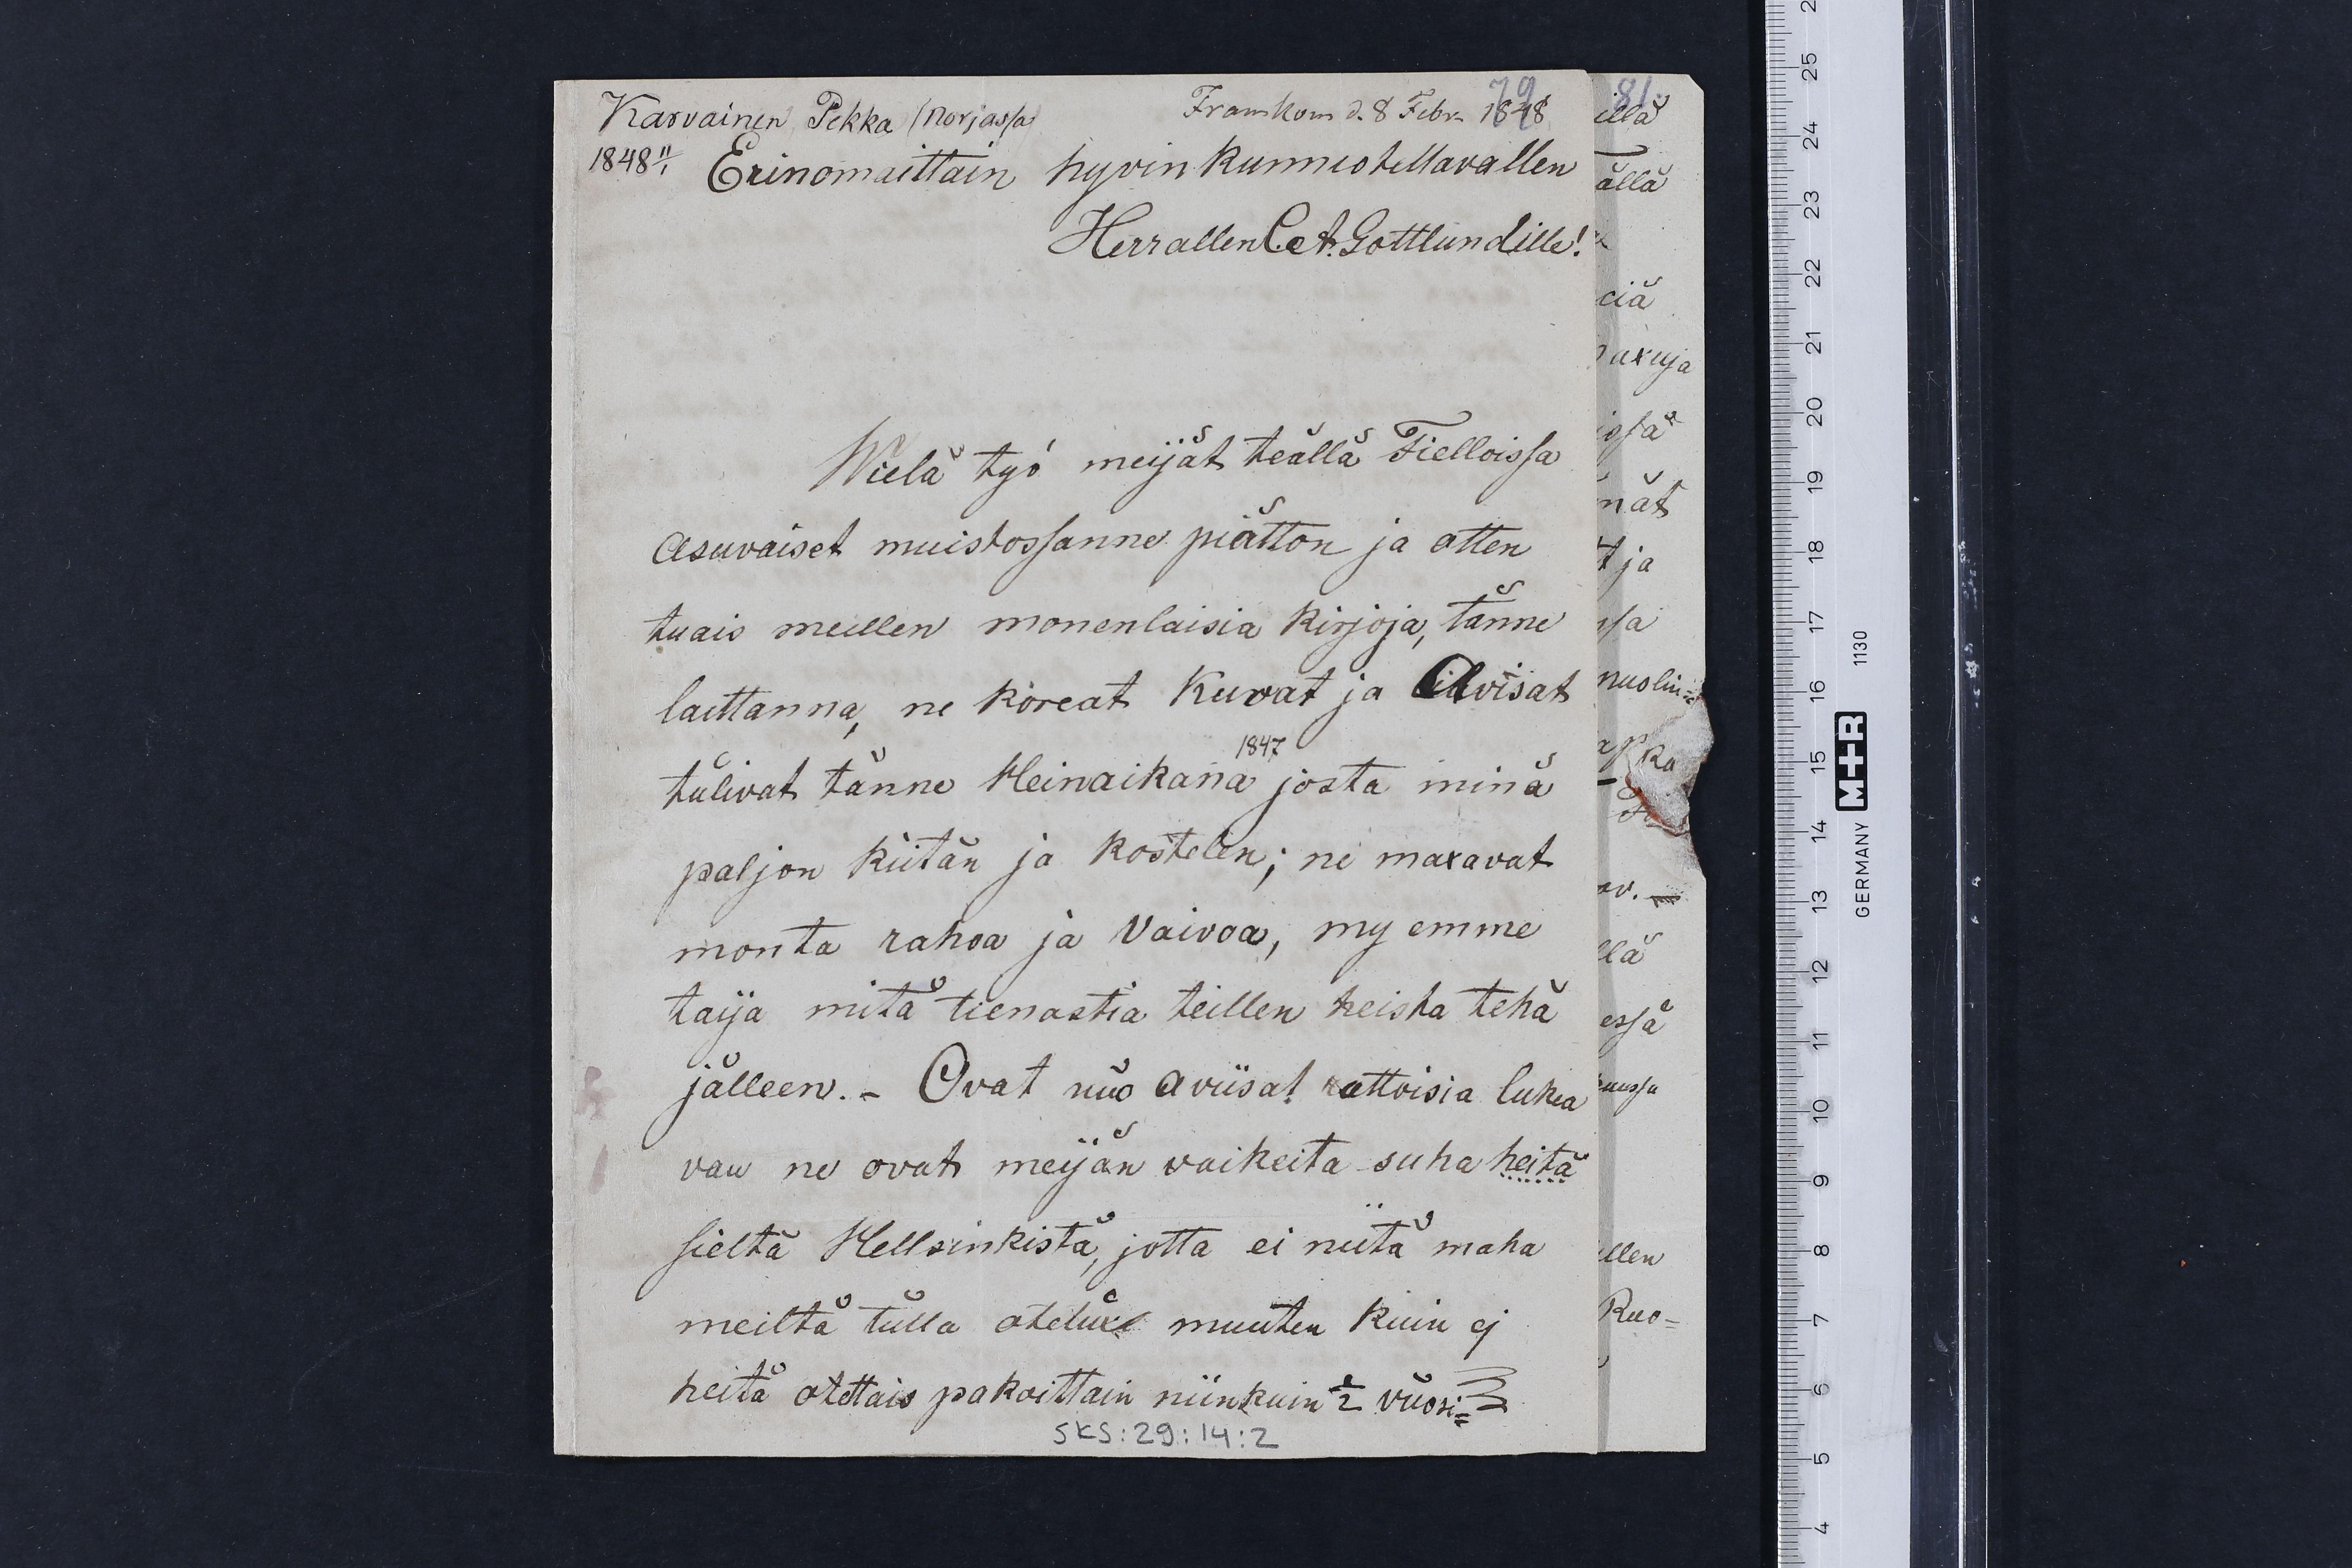 Karvainen Pekka (Norjassa)
Framkom d. 8 Febr. 1848
79
1848 11/1
Erinomaittain hyvin kunniotettavallen
Herrallen C. A. Gottlundille!
Wielä työ meijät teällä Fielloissa
asuvaiset muistossanne piätton ja otten
tuais meillen monenlaisia kirjoja, tänne
laittanna, ne koreat kuvat ja Avisat
tulivat tänne Heinaikana 1847 josta minä
paljon kiitän ja kostelen; ne maxavat
monta rahoa ja vaivoa, my emme
taija mitä tienastia teillen heista tehä
jälleen. - Ovat nuo aviisat rattoisia lukea
van ne ovat meijän vaikeita suha heitä
sieltä Hellsinkistä, jotta ei niitä maha
meiltä tulla muuten kuin ej
heitä otettais pakoittain niinkuin 1/2 vuosi=
SKS:29:14:2
81.
illä
ällä
ciä
issä
mät
t ja
ssa
nuolin=
av. —
llä
essä
ussa
illen
Ruo=
25
24
23
22
21
20
19
18
17
16
15
14
13
12
11
10
9
8
7
6
5
4
GERMANY M+R 1130